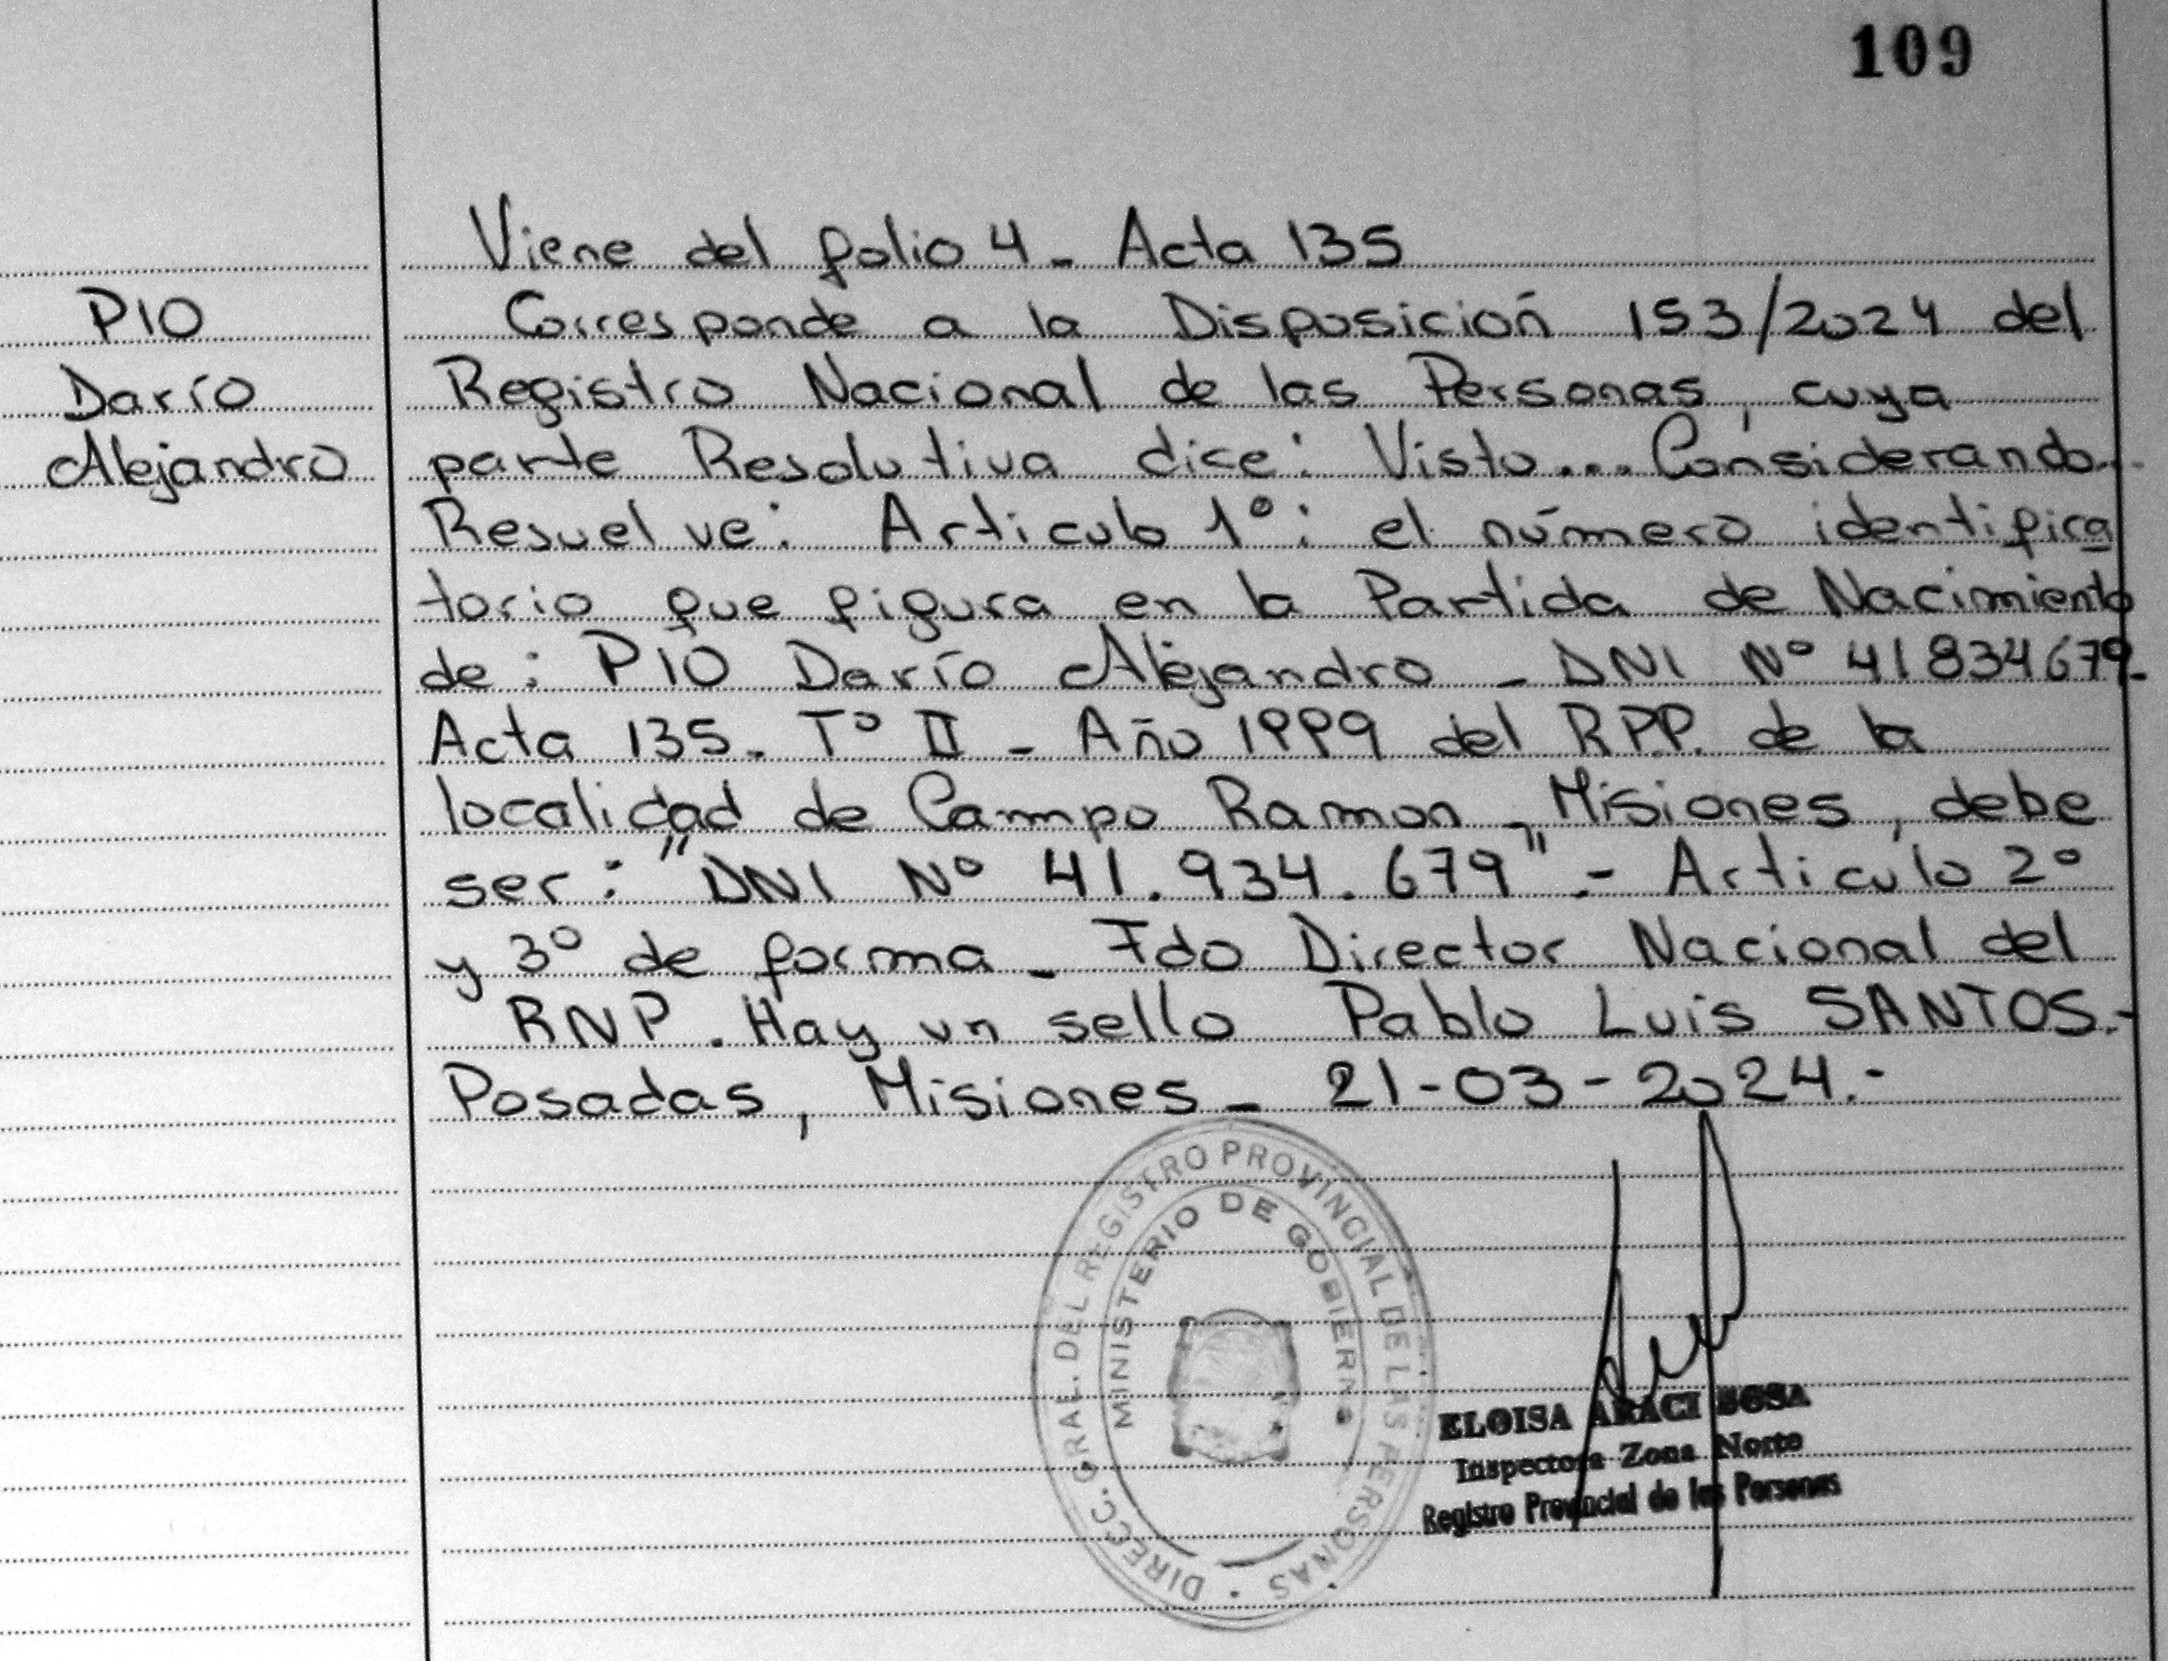 109
Viene del folio 4 - Acta 135
PIO
Darío
Alejandro
Corresponde a la Disposición 153/2024 del
Registro Nacional de las Personas, cuya
parte Resolutiva dice: Visto... Considerando..
Resuelve: Articulo 1º: el número identifica
torio que figura en la Partida de Nacimiento
de: PIO Darío Alejandro - DNI Nº 41834679-
Acta 135- Tº II - Año 1999 del RPP. de la
localidad de Campo Ramon - Misiones, debe
ser: "DNI Nº 41.934.679".- Articulo 2º
y 3º de forma - Fdo Director Nacional del
RNP. Hay un sello Pablo Luis SANTOS.-
Posadas, Misiones - 21-03-2024.-
DIRECC. GRAL. DEL REGISTRO PROVINCIAL DE LAS PERSONAS
MINISTERIO DE GOBIERNO
ELOISA ARACI SOSA
Inspectora Zona Norte
Registro Provincial de las Personas